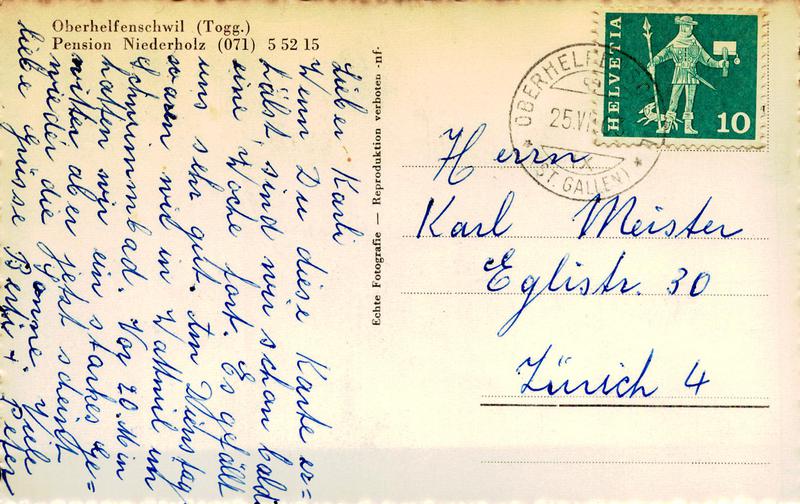 Oberhelfenschwil (Togg.)
Pension Niederholz (071) 5 52 15
Lieber Karli
Wenn Du diese Karte er=
hälst sind wir schon bald
eine Woche fort. Es gefällt
uns sehr gut. Am Dienstag
waren wir in Wattwil im
Schwimmbad. Vor 20 Min
hatten wir ein starkes Ge=
witter aber jetzt scheint
wieder die Sonne. Viele
liebe Grüsse Berti + Peter
Echte Fotografie — Reproduktion verboten -nf-
HELVETIA
10
OBERHELFENSC
25.VI
(ST. GALLEN)
Herrn
Karl Meister
Eglistr. 30
Zürich 4